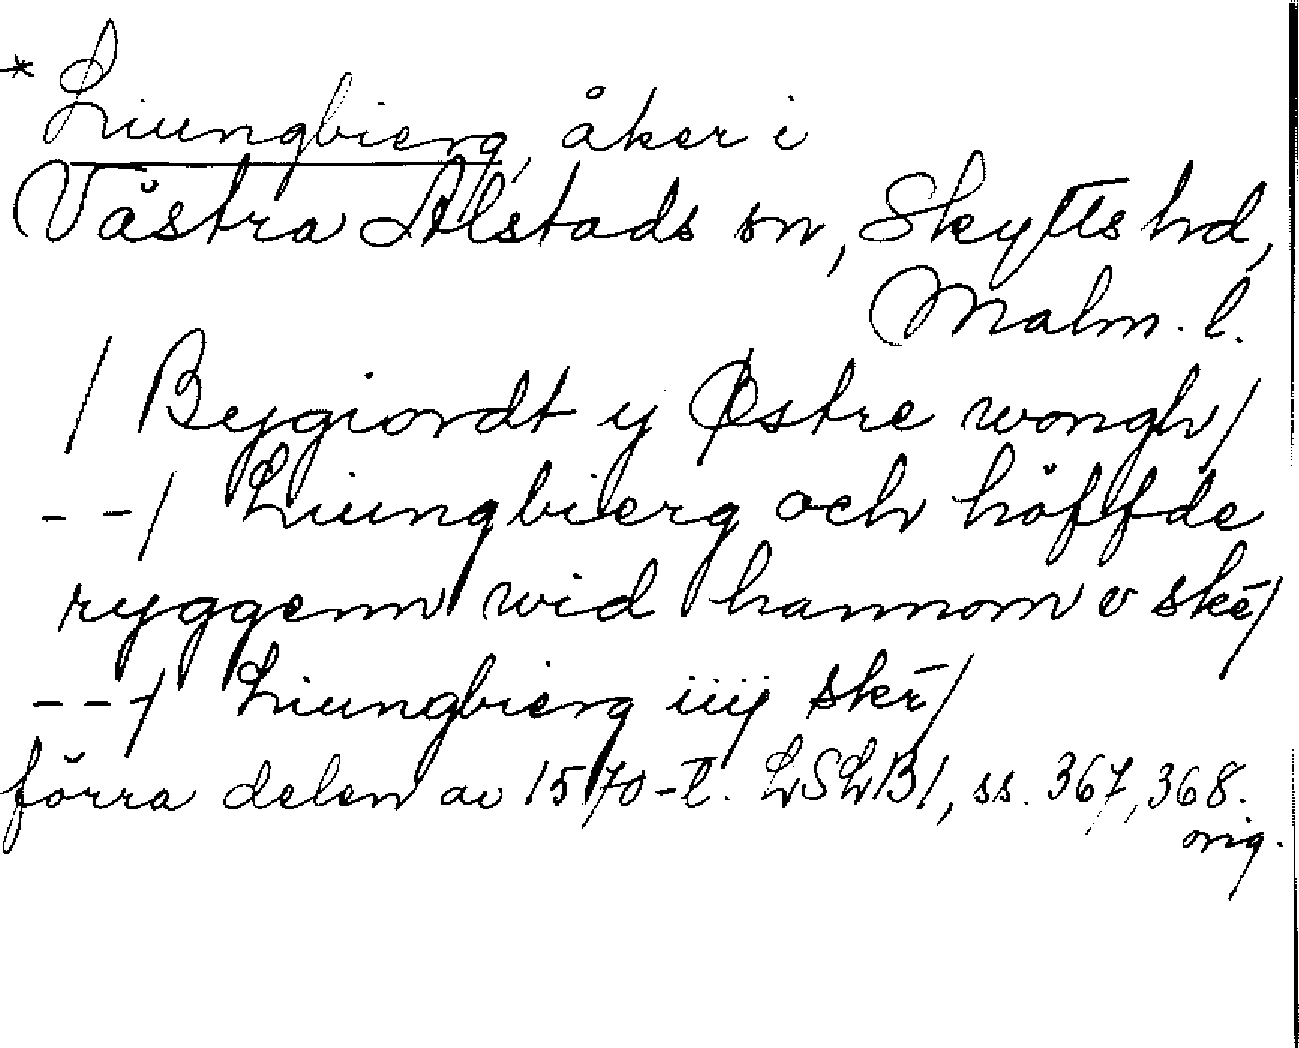 * Liungbierg, åker i
Västra Alstads sn, Skytts hd,
Malm. l.
/ Bygiordt y Østre wongh /
- - / Liungbierg och höffde
ryggenn wid hannom v skē /
- - / Liungbierg iiij skē /
förra delen av 1570-t. LSLB1, ss. 367, 368.
orig.